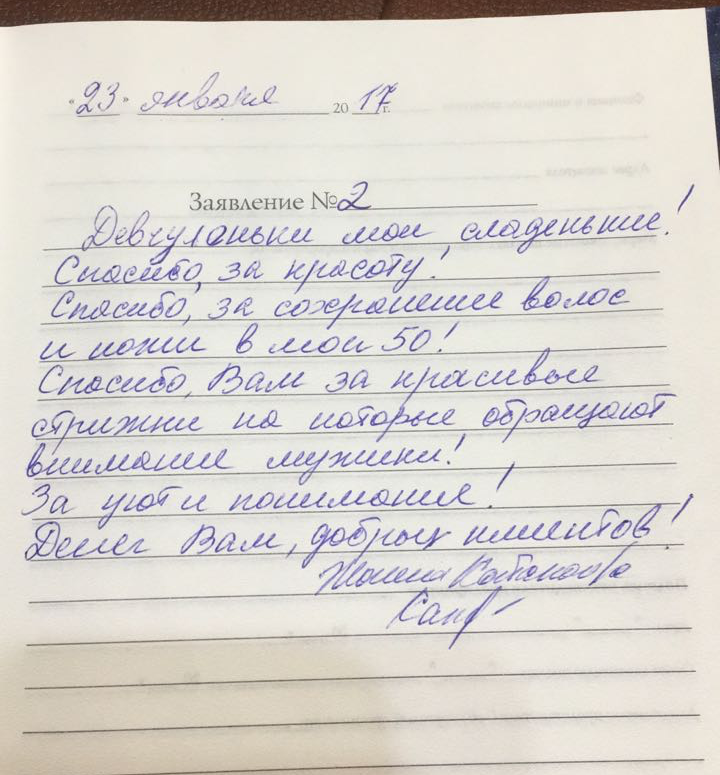 "23" января 2017г.
Заявление №2
Девчуланьки мои сладенькие!
Спасибо, за красоту!
Спасибо, за сохранение волос
и кожи в мои 50!
Спасибо, Вам за красивые
стрижки на которые обращают
внимание мужики!
За уют и понимание!
Денег Вам, добрых клиентов!